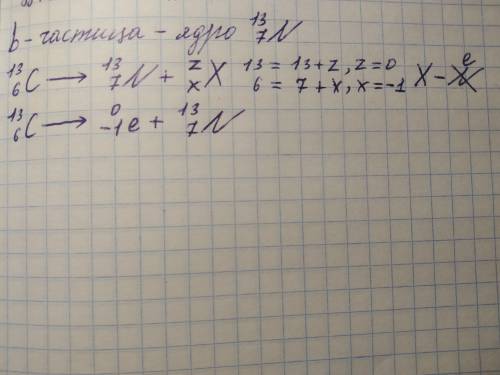 b-частица - ядро ¹³₇N
¹³₆C ⟶ ¹³₇N + ᶻₓX 13 = 13+z, z=0 6 = 7+x, x=-1 X - e
¹³₆C ⟶ ⁰₋₁e + ¹³₇N